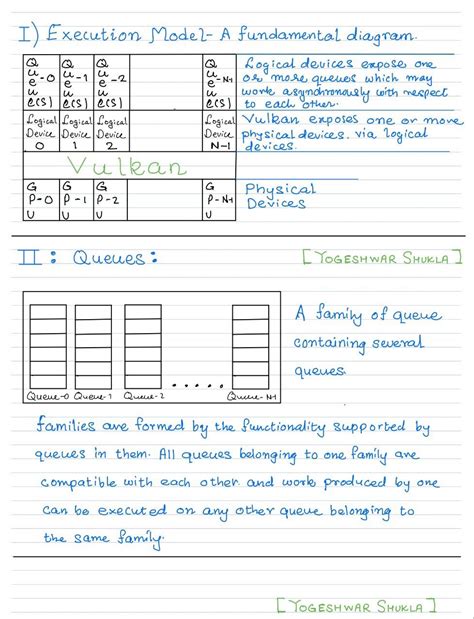 I) Execution Model- A fundamental diagram.
Queue(s) -0 Queue(s) -1 Queue(s) -2 Queue(s) -N-1
Logical devices expose one
or more queues which may
work asynchronously with respect
to each other.
Logical Device 0 Logical Device 1 Logical Device 2 Logical Device N-1
Vulkan exposes one or more
physical devices, via logical
devices.
Vulkan
GPU -0 GPU -1 GPU -2 GPU -N-1
Physical
Devices
II : Queues:
[YOGESHWAR SHUKLA]
A family of queue
containing several
queues.
Queue-0 Queue-1 Queue-2 ..... Queue-N-1
families are formed by the functionality supported by
queues in them. All queues belonging to one family are
compatible with each other and work produced by one
can be executed on any other queue belonging to
the same family.
[YOGESHWAR SHUKLA]